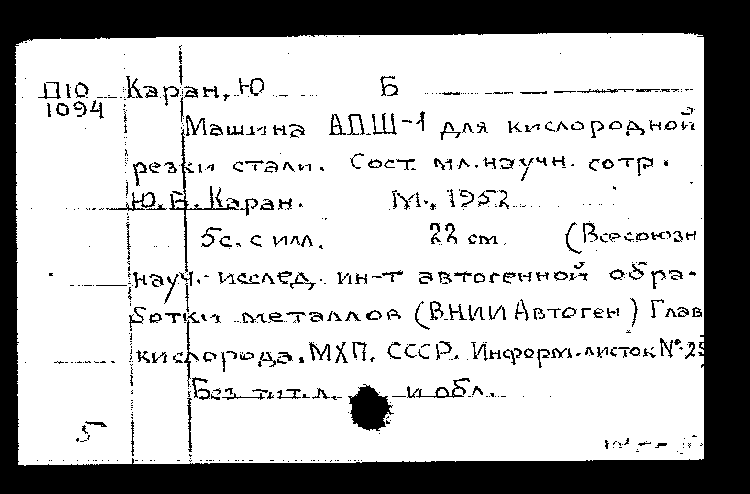 П10 Каран, Ю Б
1094
Машина АПШ-1 для кислородной
резки стали. Сост. мл. научн. сотр.
Ю.Б. Каран. М., 1952
5с. с илл. 22 см (Всесоюзн
науч.-исслед. ин-т автогенной обра-
ботки металлов (ВНИИАвтоген) Глав
кислорода. МХП. СССР. Информ. листок № 25
Без тит. л. и обл.
5